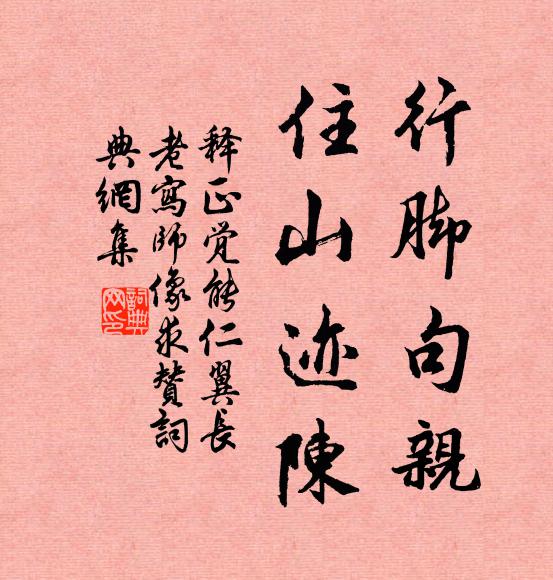 行脚句親
住山迹陳
释正觉能仁翼長
老寫師像求贊詞
典網集
詞典
网印